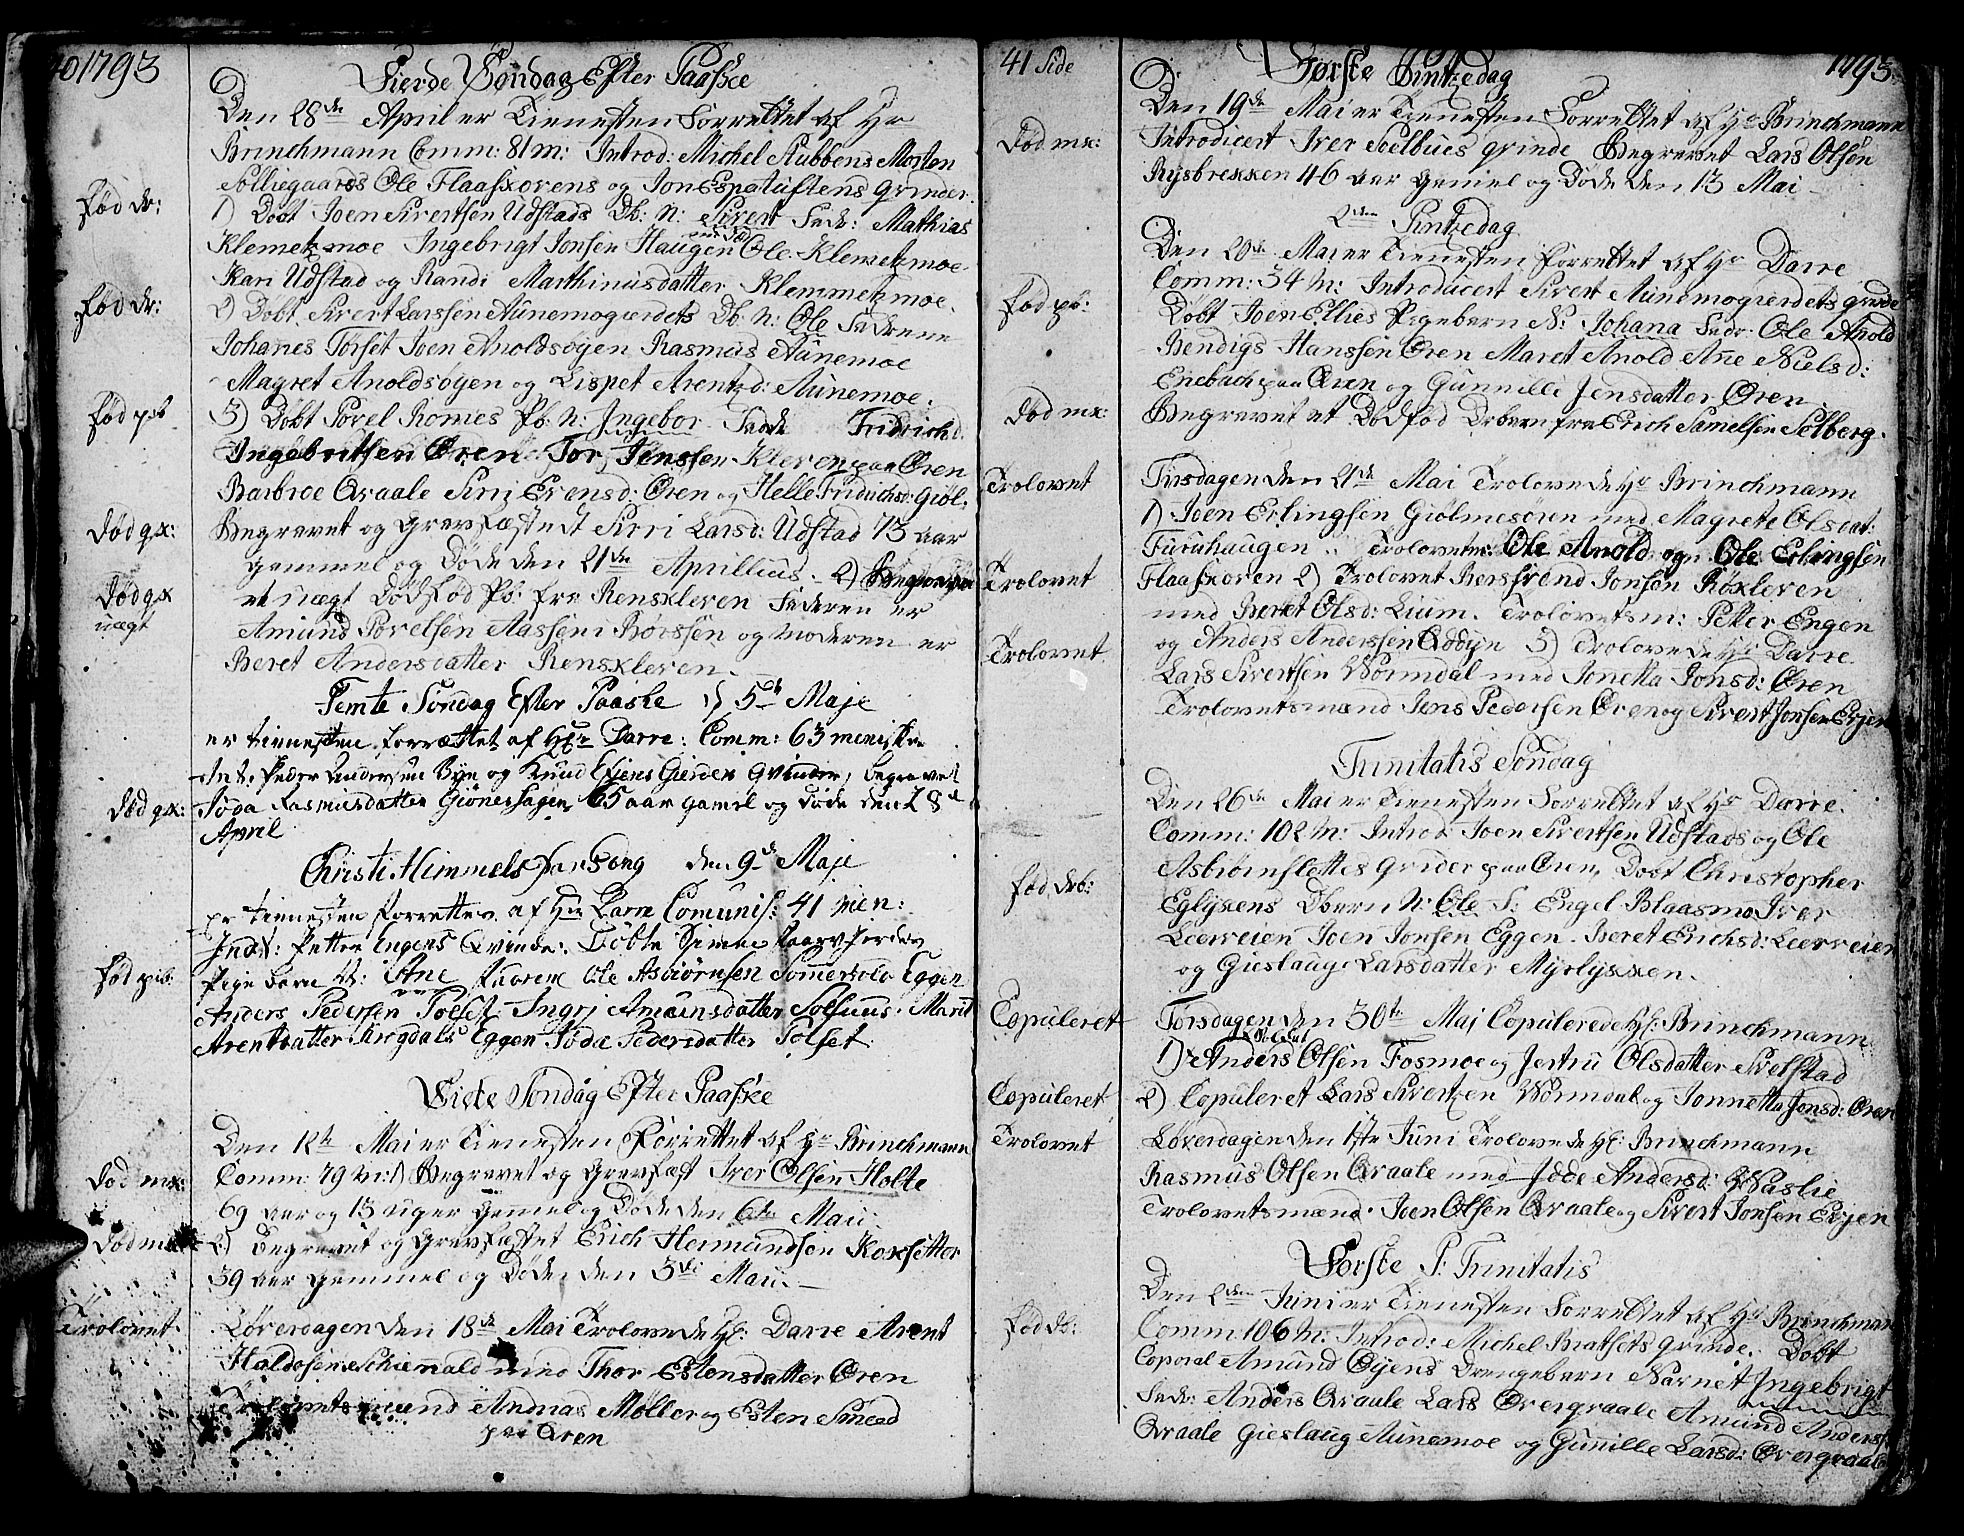 40 1793
Fierde Søndag Efter Paaske
Den 28de April er Tienesten Forrettet af Hr
Brinchmann Comm: 81 m: Introd: Michel Stubbens Morten
Solliegaards Ole Flaaskorens og Jon Espatuftens qvinder.
Fød dr:
1) Døbt Joen Sivertsen Udstads Db: N: Sivert Fadr: Mathias
Klemetzmoe Ingebrigt Jonsen Haugen Ole Klemetzmoe
Kari Udstad og Randi Marthinusdatter Klemmetzmoe.
Fød dr:
2) Døbt Sivert Larssen Aunemogierdets Db: N: Ole Fadrene
Johanes Torset Joen Anoldsøyen Rasmus Aunemoe
Magret Anoldsøyen og Lispet Arentzd: Aunemoe.
Fød pb
3) Døbt Povel Romes Pb: N: Ingebor Fadr Fridrich
Ingebritsen Øren Tor Jenssen Kleven paa Øren
Barbroe Qvaale Siri Evensd: Øren og Helle Fridrichsd: Giøl.
Død qx:
Begravet og Gravfæstedt Sirri Larsd: Udstad 73 aar
gammel og Døde den 21de Aprillius. 2) Begraven
Død qx
uægt
et uægt Dødfød Pb: fra Renskleven Faderen er
Amund Povelsen Aassen i Børssen og Moderen er
Beret Andersdatter Renskleven.
Femte Søndag Efter Paaske D 5te Maje
er tiennesten forrættet af Hr Darre: Comm: 63 meniske
Int: Peder Andersen Bye og Knud Evjens Gierdes Qvinder, begravet
Død qx:
Føda Rasmusdatter Giøneshagen 65 aar gamel og døde den 28de
April
Christi Himmelsfart dag den 9de Maje
er tiennesten forrettes af Hr Darre Comunis: 41 Men:
Indt: Petter Engens Qvinde: Døbte Simen
Fød pib:
Pige barn N: Ane Faderne Ole Asbiørnsen Sommervold Eggen
Anders Pedersen Tolset Ingri Amundsdatter Solsnus. Marit
Arentsdatter Krogdals Eggen Føda Pedersdatter Tolset.
Siette Søndag Efter Paaske
Den 12te Mai er Tienesten Forrettet af Hr Brinchmann
Død mx:
Comm: 79 m: 1) Begravet og Gravfæst Iver Olsen Holte
69 aar og 13 uger gamel og Døde den 6te Maii
Død mx
2) Begravet og Gravfæstet Erich Hermundsen Kovsetter
39 aar gammel og Døde den 3de Maii.
Trolovet
Løverdagen den 18de Mai Trolovede Hr: Darre Arent
Haldosen Schienald med Thor Estensdatter Øren
Trolovetsmænd Andrias Møller og Esten Smed
paa Øren
41 Side
1793.
Første Pintzedag
Den 19de Mai er Tienesten Forrettet af Hr Brinchmann
Død mx:
Introducert Iver Solbues qvinde Begravet Lars Olsen
Rysbrekken 46 aar gamel og Døde den 13 Mai
2den Pintzedag
Den 20de Mai er Tienesten Forrettet af Hr Darre
Comm: 34 M: Introducert Sivert Aunemogierdets qvinde
Fød pb:
Døbt Joen Ellies Pigebarn N: Johana Fadr: Ole Anold
Bendigs Hanssen Øren Maret Anold Ane Nielsd:
Enebach paa Øren og Gunnille Jensdatter Øren
Død mx:
Begravet et Dødfød Drbarn fra Erich Samelsen Solberg.
Trolovet
Tirsdagen den 21de Mai Trolovede Hr Brinchmann
1) Joen Erlingsen Giølmesøren med Magrete Olsdat:
Furuhaugen. Trolovetm: Ole Anold og Ole Erlingsen
Trolovet
Flaaskoren 2) Trolovet Borsfrend Jonsen Røkleven
med Beret Olsd: Lium. Trolovetsm: Petter Engen
Trolovet
og Anders Anderssen Oddyn 3) Trolovede Hr Darre
Lars Sivertsen Wormdal med Jonetta Jonsd: Øren
Trolovetsmænd Jens Pedersen Øren og Sivert Jonsen Evjen
Trinitatis Søndag
Den 26de Mai er Tienesten Forrettet af Hr Darre.
Comm: 102 M: Introd: Joen Sivertsen Udstads og Ole
Asbiørnslettes qvider paa Øren, Døbt Christopher
Fød drb:
Eglykens Dbarn N: Ole F: Engel Blaasmo Iver
Leerveien Joen Jonsen Eggen. Beret Erichsd: Leerveien
og Gieslaug Larsdatter Myrlykken.
Copuleret
Torsdagen den 30te Maj Copulerede Hr: Brinchmann
1) Anders Olsen Fosmoe og Jertru Olsdatter Svefstad
Copuleret
2) Copuleret Lars Sivertzen Wormdal og Jonnetta Jonsd: Øren
Trolovet
Løverdagen den 1ste Juni Trolovede Hr: Brinchmann
Rasmus Olsen Qvaale med Føde Andersd: Waslie
Trolovetsmænd Joen Olsen Qvaale og Sivert Jonsen Evjen
Første S: Trinitatis
Den 2den Juni er Tienesten Forrettet af Hr Brinchman
Fød db:
Comm: 106 M: Introd: Michel Bratsets qvinde. Døbt
Coporal Amund Øyens Drengebarn Navnet Ingebrigt
Fadr: Anders Qvaale Lars Øvreqvaale Amund Anders
Qvaale Gieslaug Aunemoe og Gunille Larsd: Øvreqvaale